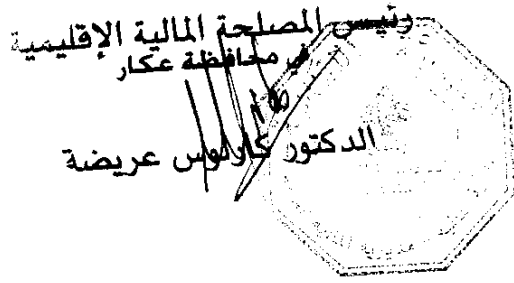 رئيس المصلحة المالية الإقليمية
في محافظة عكار
الدكتور كارلوس عريضة